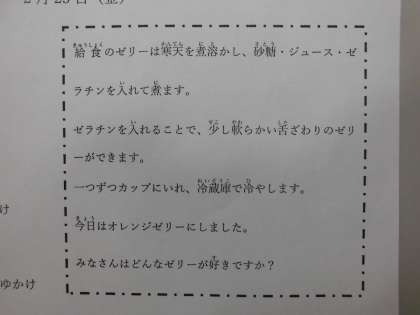 2月25日（金）
給食のゼリーは寒天を煮溶かし、砂糖・ジュース・ゼ
ラチンを入れて煮ます。
ゼラチンを入れることで、少し軟らかい舌ざわりのゼリ
ーができます。
一つずつカップにいれ、冷蔵庫で冷やします。
今日はオレンジゼリーにしました。
け
みなさんはどんなゼリーが好きですか？
ゆかけ